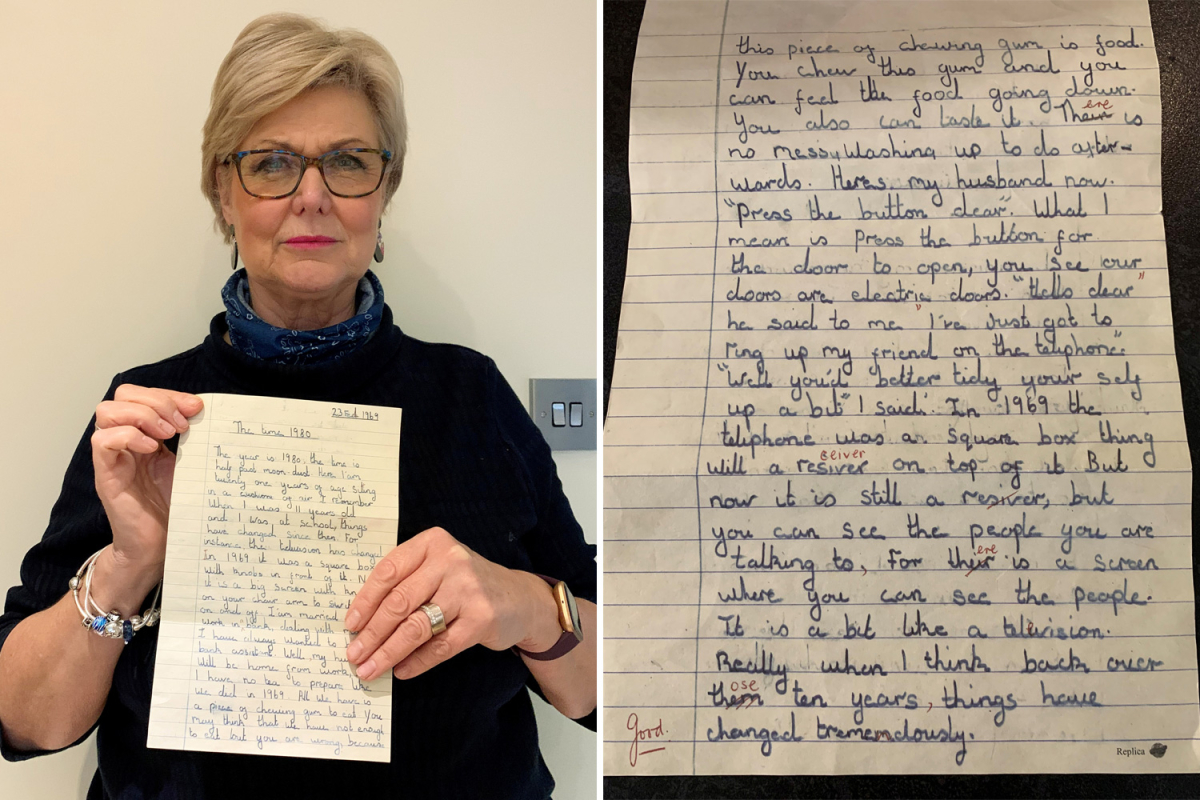 23rd 1969
The time 1980
The year is 1980, the time is
half past moon-dust. Here I am
twenty one years of age siting
in a cushion of air I remember
When I was 11 years old
and I was at school, things
have changed since then. For
instance the television has changed
In 1969 it was a square box
with knobs in front of it.
it is a big screen with
on your chair arm to
on and off. I am married
work in bank, dealing with
I have always wanted to
bank assistant. Well, my
will be home from work
I have no tea to prepare like
we did in 1969. All we have is
a piece of chewing gum to eat. You
may think that we have not enough
to eat but you are wrong, because
this piece of chewing gum is food.
You chew this gum and you
can feel the food going down.
ere
You also can taste it. Their is
no messy washing up to do after-
wards. Heres my husband now.
"Press the button dear". What I
mean is press the button for
the door to open, you see our
doors are electric doors. "Hello dear"
he said to me "I've just got to
ring up my friend on the telephone".
"Well you'd better tidy your self
up a bit" I said. In 1969 the
telephone was a square box thing
ceiver
will a resiver on top of it But
now it is still a resiver, but
you can see the people you are
ere
talking to, For their is a screen
where you can see the people.
It is a bit like a television.
Really when I think back over
ose
them ten years, things have
Good.
changed trememdously.
Replica